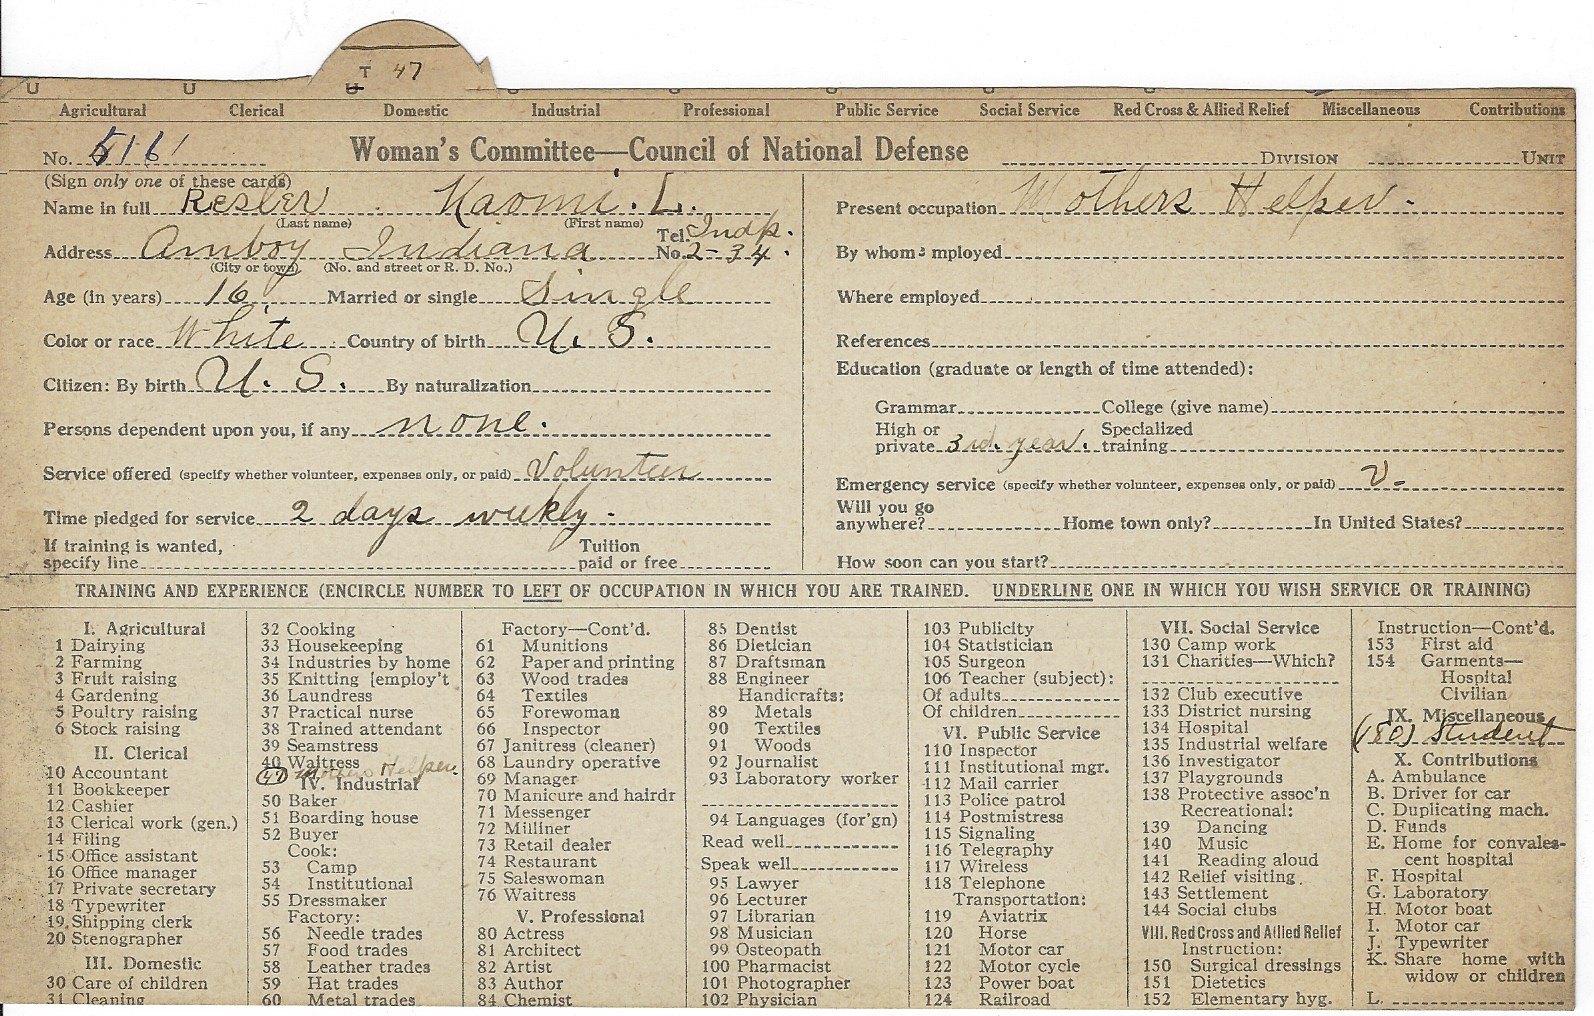 T 47
U U U
Agricultural Clerical Domestic Industrial Professional Public Service Social Service Red Cross & Allied Relief Miscellaneous Contributions
No. 5161 Woman's Committee—Council of National Defense DIVISION UNIT
(Sign only one of these cards)
Name in full Resler Naomi. L.
(Last name) (First name)
Address Amboy Indiana Tel. No. Indp. 2-34.
(City or town) (No. and street or R. D. No.)
Age (in years) 16 Married or single Single
Color or race White Country of birth U. S.
Citizen: By birth U. S. By naturalization
Persons dependent upon you, if any none.
Service offered (specify whether volunteer, expenses only, or paid) Volunteer
Time pledged for service 2 days weekly.
If training is wanted, specify line Tuition paid or free
Present occupation Mothers Helper.
By whom mployed
Where employed
References
Education (graduate or length of time attended):
Grammar College (give name)
High or private 3rd. year. Specialized training
Emergency service (specify whether volunteer, expenses only, or paid) V.
Will you go anywhere? Home town only? In United States?
How soon can you start?
TRAINING AND EXPERIENCE (ENCIRCLE NUMBER TO LEFT OF OCCUPATION IN WHICH YOU ARE TRAINED. UNDERLINE ONE IN WHICH YOU WISH SERVICE OR TRAINING)
I. Agricultural
1 Dairying
2 Farming
3 Fruit raising
4 Gardening
5 Poultry raising
6 Stock raising
II. Clerical
10 Accountant
11 Bookkeeper
12 Cashier
13 Clerical work (gen.)
14 Filing
15 Office assistant
16 Office manager
17 Private secretary
18 Typewriter
19 Shipping clerk
20 Stenographer
III. Domestic
30 Care of children
31 Cleaning
32 Cooking
33 Housekeeping
34 Industries by home
35 Knitting [employ't
36 Laundress
37 Practical nurse
38 Trained attendant
39 Seamstress
40 Waitress
(47) Mothers Helper.
IV. Industrial
50 Baker
51 Boarding house
52 Buyer
Cook:
53 Camp
54 Institutional
55 Dressmaker
Factory:
56 Needle trades
57 Food trades
58 Leather trades
59 Hat trades
60 Metal trades
Factory—Cont'd.
61 Munitions
62 Paper and printing
63 Wood trades
64 Textiles
65 Forewoman
66 Inspector
67 Janitress (cleaner)
68 Laundry operative
69 Manager
70 Manicure and hairdr
71 Messenger
72 Milliner
73 Retail dealer
74 Restaurant
75 Saleswoman
76 Waitress
V. Professional
80 Actress
81 Architect
82 Artist
83 Author
84 Chemist
85 Dentist
86 Dietician
87 Draftsman
88 Engineer
Handicrafts:
89 Metals
90 Textiles
91 Woods
92 Journalist
93 Laboratory worker
94 Languages (for'gn)
Read well
Speak well
95 Lawyer
96 Lecturer
97 Librarian
98 Musician
99 Osteopath
100 Pharmacist
101 Photographer
102 Physician
103 Publicity
104 Statistician
105 Surgeon
106 Teacher (subject):
Of adults
Of children
VI. Public Service
110 Inspector
111 Institutional mgr.
112 Mail carrier
113 Police patrol
114 Postmistress
115 Signaling
116 Telegraphy
117 Wireless
118 Telephone
Transportation:
119 Aviatrix
120 Horse
121 Motor car
122 Motor cycle
123 Power boat
124 Railroad
VII. Social Service
130 Camp work
131 Charities—Which?
132 Club executive
133 District nursing
134 Hospital
135 Industrial welfare
136 Investigator
137 Playgrounds
138 Protective assoc'n
Recreational:
139 Dancing
140 Music
141 Reading aloud
142 Relief visiting
143 Settlement
144 Social clubs
VIII. Red Cross and Allied Relief
Instruction:
150 Surgical dressings
151 Dietetics
152 Elementary hyg.
Instruction—Cont'd.
153 First aid
154 Garments—
Hospital
Civilian
IX. Miscellaneous
(180) Student
X. Contributions
A. Ambulance
B. Driver for car
C. Duplicating mach.
D. Funds
E. Home for convales-
cent hospital
F. Hospital
G. Laboratory
H. Motor boat
I. Motor car
J. Typewriter
K. Share home with
widow or children
L.